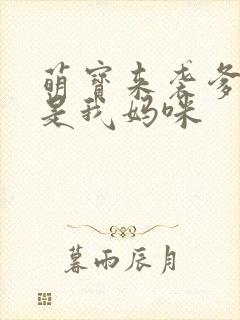 萌宝来袭爹
是我妈咪
暮雨辰月